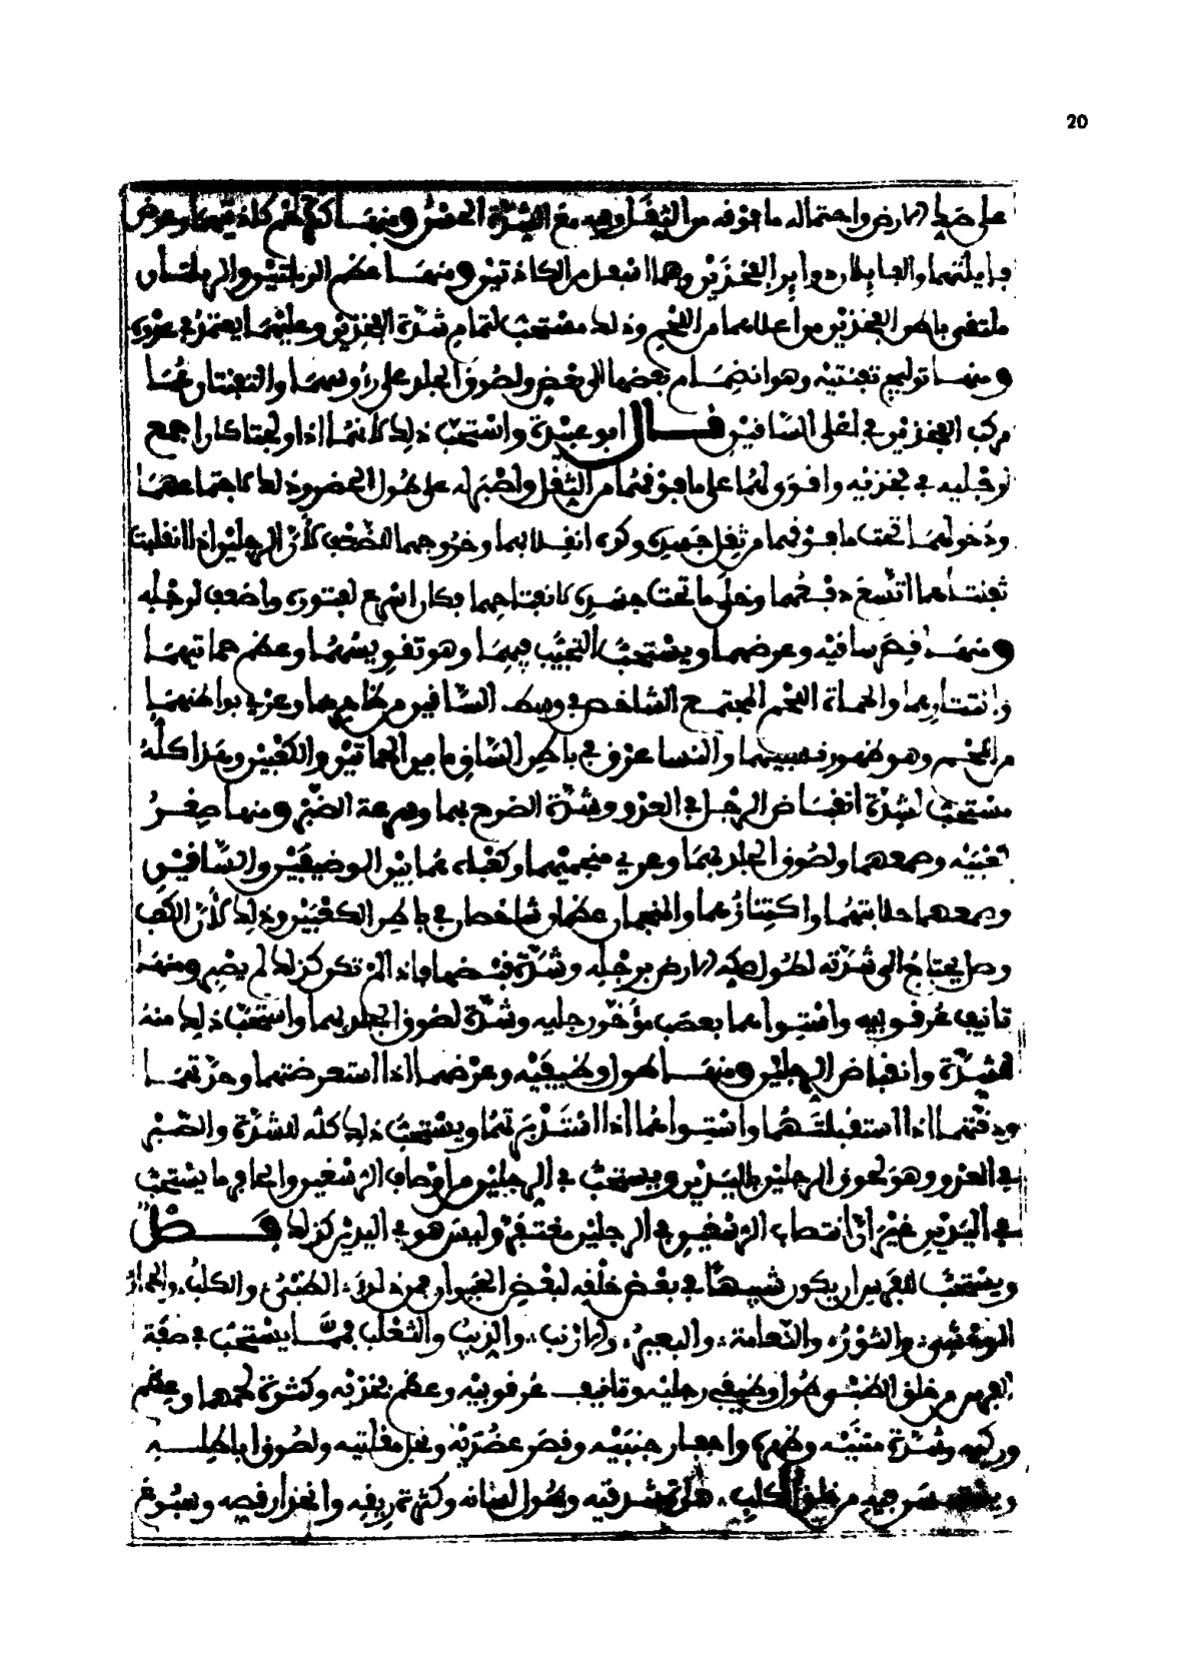 20
على ضبط الارض واحتماله ما فوقه من الثقل وفيه مع الشدة الحضر ومنها كثرة لحم كاذتيهما وعرض
فايلتهما والفايلان دوابر الفخذين وهما اسفل من الكاذتين ومنها عظم الربلتين والربلتان
ملتقى باطن الفخذين من اعلاهما من اللحم وذلك مستحب لتمام شدة الفخذين وعليهما يعتمد في عدوه
ومنها توليج ثفنتيه وهو انضمام بعضها الى بعض ولصوق الجلد على رؤوسهما والثفنتان هما
مركب الفخذين في اعلى الساقين قال ابو عبيدة واستحب ذلك لانهما اذا ولجتا كان اجمع
لرجليه في فخذيه واقوى لهما على ما فوقهما من الثقل واصبر له على طول الحضر وذلك لاجتماعهما
ودخولهما تحت ما فوقهما من ثقل جسده وكره انقلابهما وخروجهما للضعف لأن الرجلين اذا انقلبت
ثفنتاهما اتسع رفغهما وخلى ما تحت جسده لانفتاحهما فكان اسرع لفتوره واضعف لرجله
ومنها قصر ساقيه وعرضهما ويستحب التجنيب فيهما وهو تقويسهما وعظم حماتيهما
وانتبارهما والحماة اللحم المجتمع الشاخص في وسط الساقين من ظاهرهما وعري بواطنهما
من اللحم وهو ظهور نسييهما والنسا عرق في باطن الساق ما بين الحماتين والكعبين وهذا كله
مستحب لشدة انقباض الرجل في العدو وشدة الضرح بهما وسرعة الضبر ومنها صغر
كعبيه وصمعهما ولصوق الجلد بهما وعري منجميهما وكعباه هما بين الوظيفين والساقين
وصمعهما صلابتهما واكتنازهما والمنجمان عظمان شاخصان في باطن الكعبين وذلك لأن الكعب
وصل يحتاج الى شدته لطول صكه الارض برجله وشدة قبضهما فاذا لم تكن كذلك لم يصبر ومنها
تانيف عرقوبيه واستواءهما بعصب مؤخر رجليه وشدة لصوق الجلد بهما واستحب ذلك منه
لشدة وانقباض الرجلين ومنها طول وظيفيه وعرضهما اذا استعرضتهما وحدتهما
ودقتهما اذا استقبلتهما واستواءهما اذا استدبرتهما ويستحب ذلك كله للشدة والصبر
في العدو وهو لحوق الرجلين باليدين ويستحب في الرجلين من اوصاف الرسغين والحافر ما يستحب
في اليدين غير انّ انتصاب الرسغين في الرجلين مغتفر وليس هو في اليدين كذلك فصل
ويستحب للفرس ان يكون شبيها في بعض خلقه لبعض الحيوان فمن ذلك الظبي والكلب والحمار
الوحشي والثور والنعامة والبعير والارنب والذيب والثعلب فمما يستحب في صفة
الفرس من خلق الظبي طول وظيفي رجليه وتانيف عرقوبيه وعظم فخذيه وكثرة لحمها وعظم
وركيه وشدة متنيه وظهره واجفار جنبيه وقصر عضديه ونجل مقلتيه ولصوق اباطله
من خلق الكلب هرت شدقيه وطول لسانه وكثرة ريقه وانحدار قصه وسبوغ